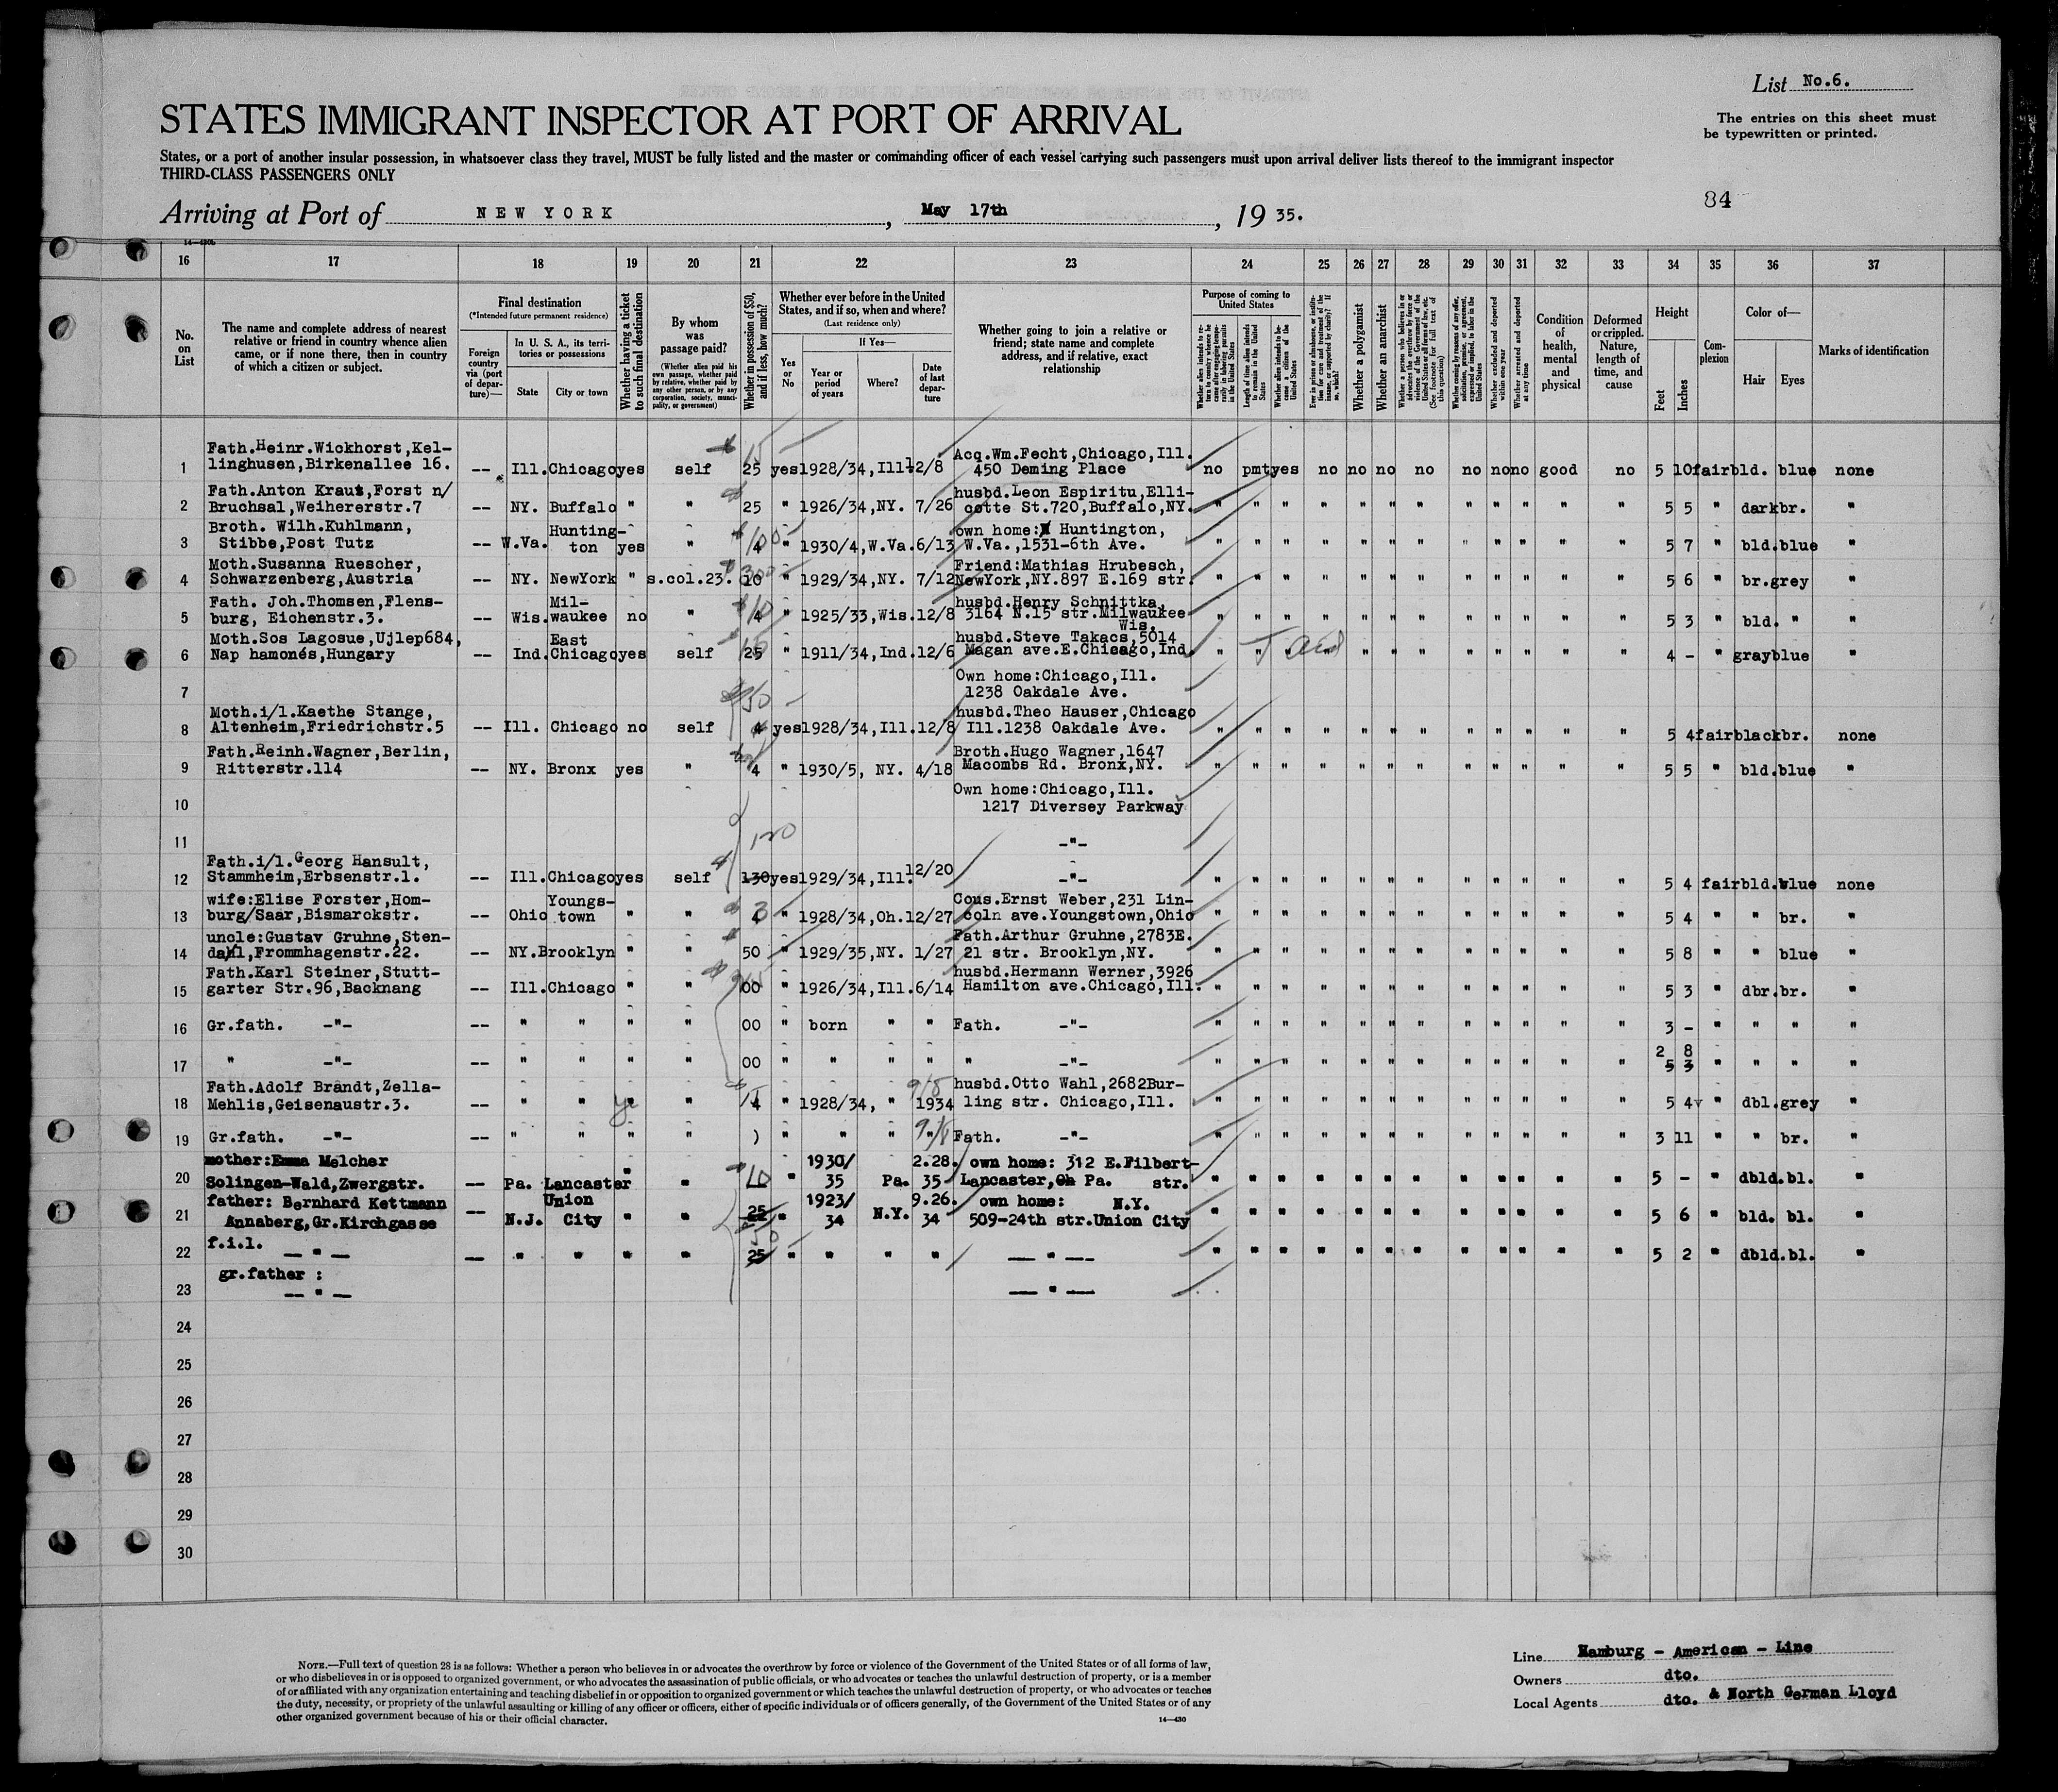 List No.6.
STATES IMMIGRANT INSPECTOR AT PORT OF ARRIVAL
The entries on this sheet must
be typewritten or printed.
States, or a port of another insular possession, in whatsoever class they travel, MUST be fully listed and the master or commanding officer of each vessel carrying such passengers must upon arrival deliver lists thereof to the immigrant inspector
THIRD-CLASS PASSENGERS ONLY
84
Arriving at Port of NEW YORK, May 17th, 19 35.
16 17 18 19 20 21 22 23 24 25 26 27 28 29 30 31 32 33 34 35 36 37
No. on List
The name and complete address of nearest relative or friend in country whence alien came, or if none there, then in country of which a citizen or subject.
Final destination
(*Intended future permanent residence)
Foreign country via (port of departure)—
In U. S. A., its territories or possessions
State
City or town
Whether having a ticket to such final destination
By whom was passage paid?
(Whether alien paid his own passage, whether paid by relative, whether paid by any other person, or by any corporation, society, municipality, or government)
Whether in possession of $50, and if less, how much?
Whether ever before in the United States, and if so, when and where?
(Last residence only)
Yes or No
If Yes—
Year or period of years
Where?
Date of last departure
Whether going to join a relative or friend; state name and complete address, and if relative, exact relationship
Purpose of coming to United States
Length of time alien intends to remain in the United States
Whether alien intends to become a citizen of the United States
Whether a polygamist
Whether an anarchist
Whether excluded and deported within one year
Whether arrested and deported at any time
Condition of health, mental and physical
Deformed or crippled. Nature, length of time, and cause
Height
Feet
Inches
Complexion
Color of—
Hair
Eyes
Marks of identification
1 Fath.Heinr.Wickhorst,Kel-
linghusen,Birkenallee 16. -- Ill. Chicago yes self 25 yes 1928/34,Ill. 12/8 Acq.Wm.Fecht,Chicago,Ill.
450 Deming Place no pmt yes no no no no no no no good no 5 10 fair bld. blue none
2 Fath.Anton Kraut,Forst n/
Bruchsal,Weihererstr.7 -- NY. Buffalo " " 25 " 1926/34,NY. 7/26 husbd.Leon Espiritu,Elli-
cotte St.720,Buffalo,NY. " " " " " " " " " " " " 5 5 " dark br. "
3 Broth. Wilh.Kuhlmann,
Stibbe,Post Tutz -- W.Va. Hunting-
ton yes " 4 " 1930/4,W.Va. 6/13 own home: Huntington,
W.Va.,1531-6th Ave. " " " " " " " " " " " " 5 7 " bld. blue "
4 Moth.Susanna Ruescher,
Schwarzenberg,Austria -- NY. NewYork " s.col.23. 10 " 1929/34,NY. 7/12 Friend:Mathias Hrubesch,
NewYork,NY.897 E.169 str. " " " " " " " " " " " " 5 6 " br. grey "
5 Fath. Joh.Thomsen,Flens-
burg, Eichenstr.3. -- Wis. Mil-
waukee no " 4 " 1925/33,Wis. 12/8 husbd.Henry Schnittka,
3164 N.15 str.Milwaukee
Wis. " " " " " " " " " " " " 5 3 " bld. " "
6 Moth.Sos Lagosue,Ujlep684,
Nap hamonés,Hungary -- Ind. East
Chicago yes self 25 " 1911/34,Ind. 12/6 husbd.Steve Takacs,5014
Magan ave.E.Chicago,Ind. " " " " " " " " " " " " 4 - " gray blue "
7 Own home:Chicago,Ill.
1238 Oakdale Ave.
8 Moth.i/l.Kaethe Stange,
Altenheim,Friedrichstr.5 -- Ill. Chicago no self 4 yes 1928/34,Ill. 12/8 husbd.Theo Hauser,Chicago
Ill.1238 Oakdale Ave. " " " " " " " " " " " " 5 4 fair black br. none
9 Fath.Reinh.Wagner,Berlin,
Ritterstr.114 -- NY. Bronx yes " 4 " 1930/5, NY. 4/18 Broth.Hugo Wagner,1647
Macombs Rd. Bronx,NY. " " " " " " " " " " " " 5 5 " bld. blue "
10 Own home:Chicago,Ill.
1217 Diversey Parkway
11 -"-
12 Fath.i/l.Georg Hansult,
Stammheim,Erbsenstr.1. -- Ill. Chicago yes self 130 yes 1929/34,Ill. 12/20 -"- " " " " " " " " " " " " 5 4 fair bld. blue none
13 wife:Elise Forster,Hom-
burg/Saar,Bismarckstr. -- Ohio Youngs-
town " " 4 " 1928/34,Oh. 12/27 Cous.Ernst Weber,231 Lin-
coln ave.Youngstown,Ohio " " " " " " " " " " " " 5 4 " " br. "
14 uncle:Gustav Gruhne,Sten-
dahl,Frommhagenstr.22. -- NY. Brooklyn " " 50 " 1929/35,NY. 1/27 Fath.Arthur Gruhne,2783E.
21 str. Brooklyn,NY. " " " " " " " " " " " " 5 8 " " blue "
15 Fath.Karl Steiner,Stutt-
garter Str.96,Backnang -- Ill. Chicago " " 00 " 1926/34,Ill. 6/14 husbd.Hermann Werner,3926
Hamilton ave.Chicago,Ill. " " " " " " " " " " " " 5 3 " dbr. br. "
16 Gr.fath. -"- -- " " " " 00 " born " " Fath. -"- " " " " " " " " " " " " 3 - " " " "
17 " -"- -- " " " " 00 " " " " " -"- " " " " " " " " " " " " 2 8 " " " "
18 Fath.Adolf Brandt,Zella-
Mehlis,Geisenaustr.3. -- " " " " 4 " 1928/34, " 9/8 1934 husbd.Otto Wahl,2682Bur-
ling str. Chicago,Ill. " " " " " " " " " " " " 5 4 " dbl. grey "
19 Gr.fath. -"- -- " " " " ) " " " " Fath. -"- " " " " " " " " " " " " 3 11 " " br. "
20 mother:Emma Melcher
Solingen-Wald,Zwergstr. -- Pa. Lancaster " " " 1930/
35 Pa. 2.28.
35 own home: 312 E.Filbert-
Lancaster, Pa. str. " " " " " " " " " " " " 5 - " dbld. bl. "
21 father: Bernhard Kettmann
Annaberg,Gr.Kirchgasse -- N.J. Union
City " " 25 " 1923/
34 N.Y. 9.26.
34 own home: N.Y.
509-24th str.Union City " " " " " " " " " " " " 5 6 " bld. bl. "
22 f.i.l. — " — -- " " " " 25 " " " " — " — " " " " " " " " " " " " 5 2 " dbld. bl. "
23 gr.father :
— " — — " —
24
25
26
27
28
29
30
NOTE.—Full text of question 28 is as follows: Whether a person who believes in or advocates the overthrow by force or violence of the Government of the United States or of all forms of law,
or who disbelieves in or is opposed to organized government, or who advocates the assassination of public officials, or who advocates or teaches the unlawful destruction of property, or is a member
of or affiliated with any organization entertaining and teaching disbelief in or opposition to organized government or which teaches the unlawful destruction of property, or who advocates or teaches
the duty, necessity, or propriety of the unlawful assaulting or killing of any officer or officers, either of specific individuals or of officers generally, of the Government of the United States or of any
other organized government because of his or their official character.
14—430
Line Hamburg - American - Line
Owners dto.
Local Agents dto. & North German Lloyd